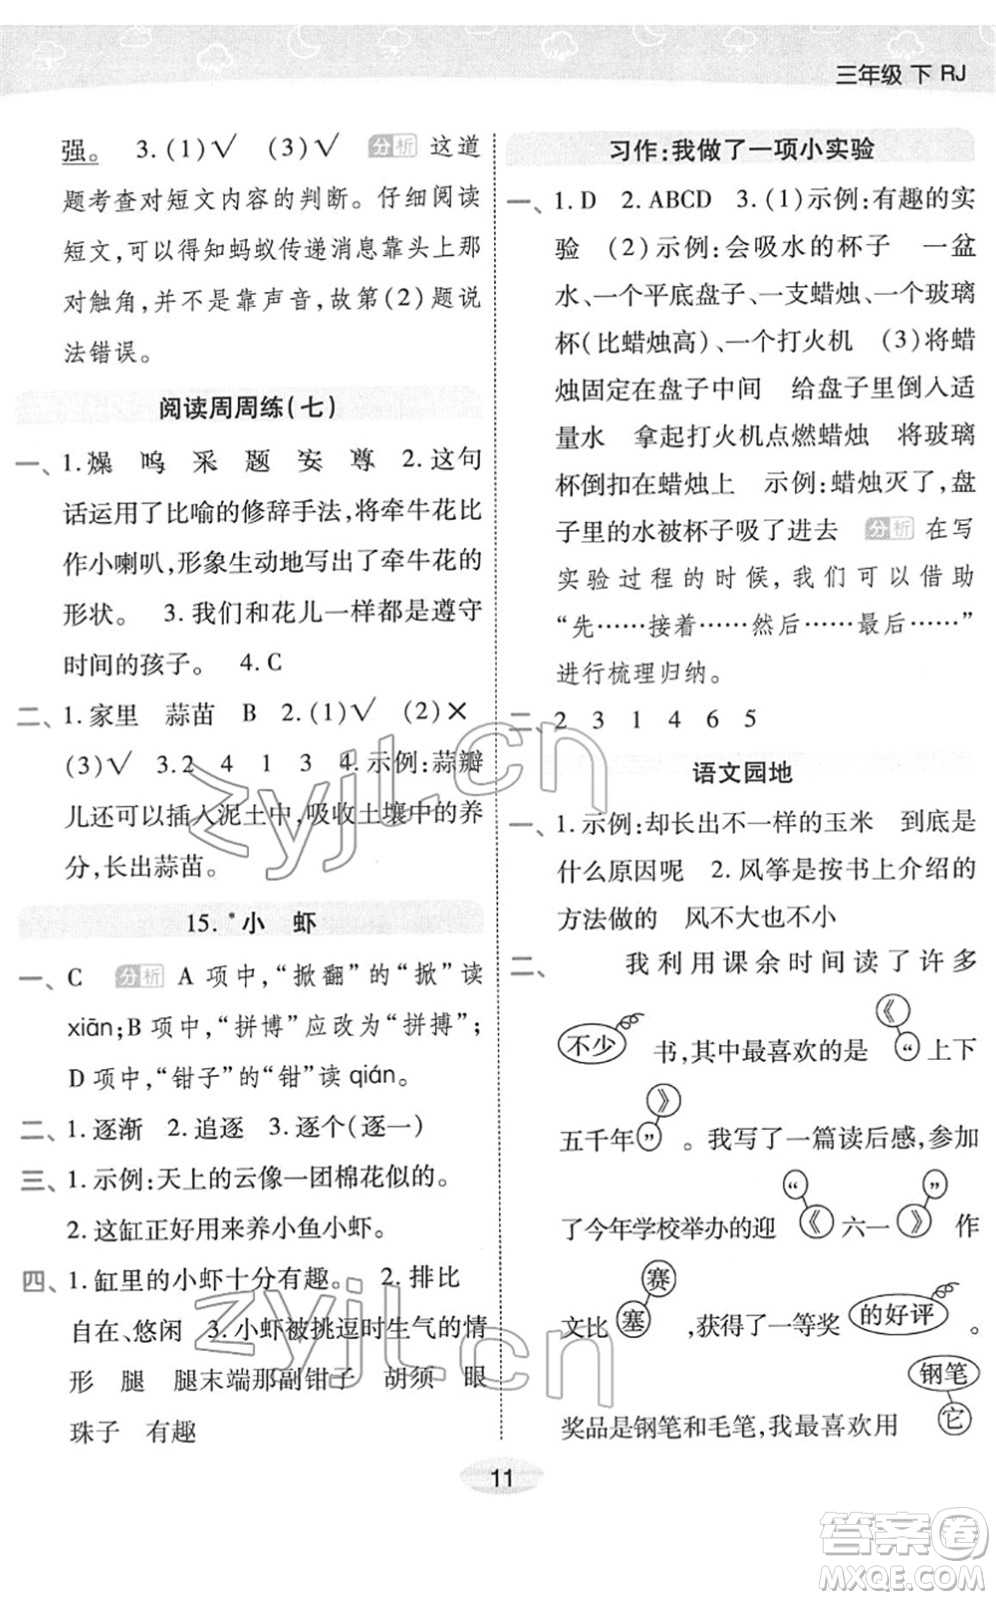 三年级 下 RJ
强。 3.(1)√ (3)√ 分析 这道
题考查对短文内容的判断。仔细阅读
短文,可以得知蚂蚁传递消息靠头上那
对触角,并不是靠声音,故第(2)题说
法错误。
阅读周周练(七)
一、1.燥 鸣 采 题 安 尊 2.这句
话运用了比喻的修辞手法,将牵牛花比
作小喇叭,形象生动地写出了牵牛花的
形状。 3.我们和花儿一样都是遵守
时间的孩子。 4.C
二、1.家里 蒜苗 B 2.(1)√ (2)×
(3)√ 3.2 4 1 3 4.示例:蒜瓣
儿还可以插入泥土中,吸收土壤中的养
分,长出蒜苗。
15.*小 虾
一、C 分析 A 项中,“掀翻”的“掀”读
xiān;B 项中,“拼博”应改为“拼搏”;
D 项中,“钳子”的“钳”读 qián。
二、1.逐渐 2.追逐 3.逐个(逐一)
三、1.示例:天上的云像一团棉花似的。
2.这缸正好用来养小鱼小虾。
四、1.缸里的小虾十分有趣。 2.排比
自在、悠闲 3.小虾被挑逗时生气的情
形 腿 腿末端那副钳子 胡须 眼
珠子 有趣
习作:我做了一项小实验
一、1.D 2.ABCD 3.(1)示例:有趣的实
验 (2)示例:会吸水的杯子 一盆
水、一个平底盘子、一支蜡烛、一个玻璃
杯(比蜡烛高)、一个打火机 (3)将蜡
烛固定在盘子中间 给盘子里倒入适
量水 拿起打火机点燃蜡烛 将玻璃
杯倒扣在蜡烛上 示例:蜡烛灭了,盘
子里的水被杯子吸了进去 分析 在写
实验过程的时候,我们可以借助
“先……接着……然后……最后……”
进行梳理归纳。
二、2 3 1 4 6 5
语文园地
一、1.示例:却长出不一样的玉米 到底是
什么原因呢 2.风筝是按书上介绍的
方法做的 风不大也不小
二、 我利用课余时间读了许多
《
不少 书,其中最喜欢的是 “ 上下
》
五千年 ” 。我写了一篇读后感,参加
“ ”
了今年学校举办的迎 《 六一 》 作
赛
文比 塞 ,获得了一等奖 的好评 。
钢笔
奖品是钢笔和毛笔,我最喜欢用 它
11
zyjl.cn
zyjl.cn
答案圈
MXQE.COM